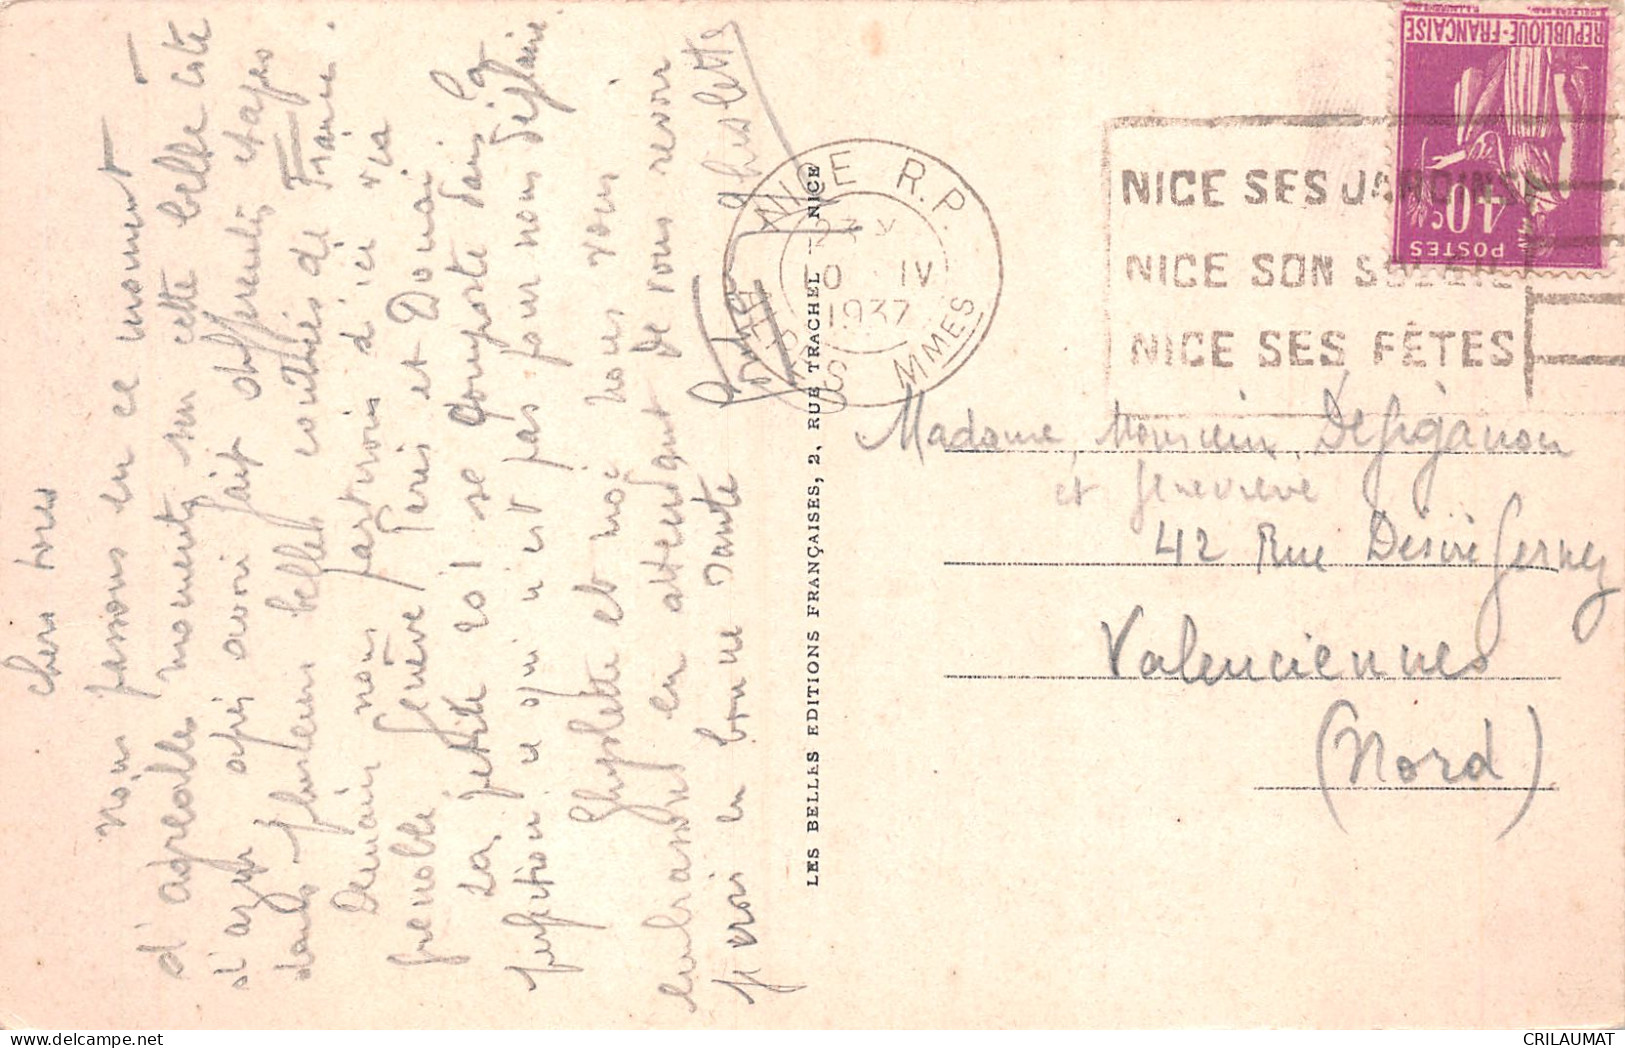 Chers tous
Nous passons en ce moment
d'agreables moments sur cette belle côte
d'azur après avoir fait differents etapes
dans plusieurs belles contrées de France.
Demain nous partirons d'ici via
Grenoble, Genève, Paris et Douai
La petite se comporte dans la
perfection ce qui n'est pas pour nous déplaire.
Ghyslette et moi nous vous
embrassons en attendant de vous revoir
en bonne santé
Ghyslette
LES BELLES EDITIONS FRANÇAISES, 2, RUE TRACHEL NICE
NICE R.P.
10 IV
1937
MMES
NICE SES JARDINS
NICE SON SOLEIL
NICE SES FÊTES
REPUBLIQUE-FRANÇAISE
40c
POSTES
Madame, Monsieur
et Geneviève
42 Rue Desiré
Valenciennes
(Nord)
CRILAUMAT